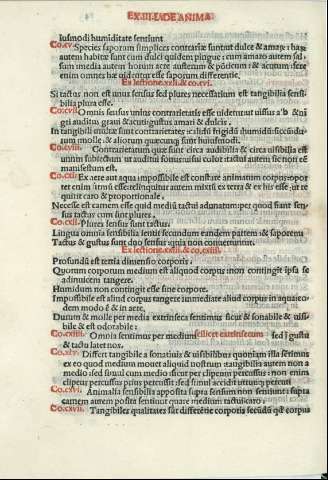 EX.III.DE ANIMA
iusmodi humiditate sentiunt
Co.cv. Species saporum simplices contrariæ sunt ut dulce & amarum: hæ
autem habitæ sunt cum dulci quidem pingue: cum amaro autem sal
sum: media autem horum acre austerum & ponticum: & acutum: fere
enim omnes hæ uidentur esse saporum differentie.
Ex lectione.xxii.& co.cvi.
Si tactus non est unus sensus sed plures necessarium est tangibilia sensi
bilia plura esse.
Co.cvii. Omnis sensus unius contrarietatis esse uidetur ut uisus albi & ni
gri auditus graui & acuti: gustus amari & dulcis.
In tangibili multæ sunt contrarietates: calidum frigidum humidum siccum: du
rum molle: & aliorum quæcunque sunt huiusmodi.
Co.cviii. Contrarietatum quæ sunt circa audibilia & circa uisibilia est
unum subiectum ut auditui sonus: uisui color: tactui autem sic non est
manifestum est.
Co.cxi. Ex aere aut aqua impossibile est constare animatum corpus: opor
tet enim firmum esse: relinquitur autem mixtum ex terra & ex his esse: ut re
quirit caro & proportionale.
Necesse est carnem esse quid medium tactui adunatum: per quod fiant sen
sus tactus cum sint plures.
Co.cxii. Plures sensus sunt tactus.
Lingua omnia sensibilia sentit secundum eandem partem: & saporem
Tactus & gustus sunt duo sensus quia non conuertuntur.
Ex lectione.xxiii.& co.cxiii.
Profundum est tertia dimensio corporis.
Quorum corporum medium est aliquod corpus: non contingit ipsa se
adinuicem tangere.
Humidum non contingit esse sine corpore.
Impossibile est aliud corpus tangere immediate aliud corpus in aqua: eo
dem modo est & in aere.
Durum & molle per media extrinseca sentimus sicut & sonabile & uisi
bile & est odorabile:
Co.cxiiii. Omnia sentimus per medium scilicet extrinsecum sed in gustu
& tactu latet nos.
Co.cxv. Differt tangibile a sonatiuis & uisibilibus quoniam illa sentimus
ex eo quod medium mouet aliquid nostrum: tangibilia autem non a
medio: sed simul cum medio sicut per clipeum percussus: non enim
clipeus percussus prius percussit: sed simul accidit utrunque percuti
Co.cxvi. Animalia sensibilia apposita supra sensum non sentiunt: supra
carnem autem posita sentiunt quare medium tactus: caro:
Co.cxvii. Tangibiles qualitates sunt differentie corporis secundum quod corpus